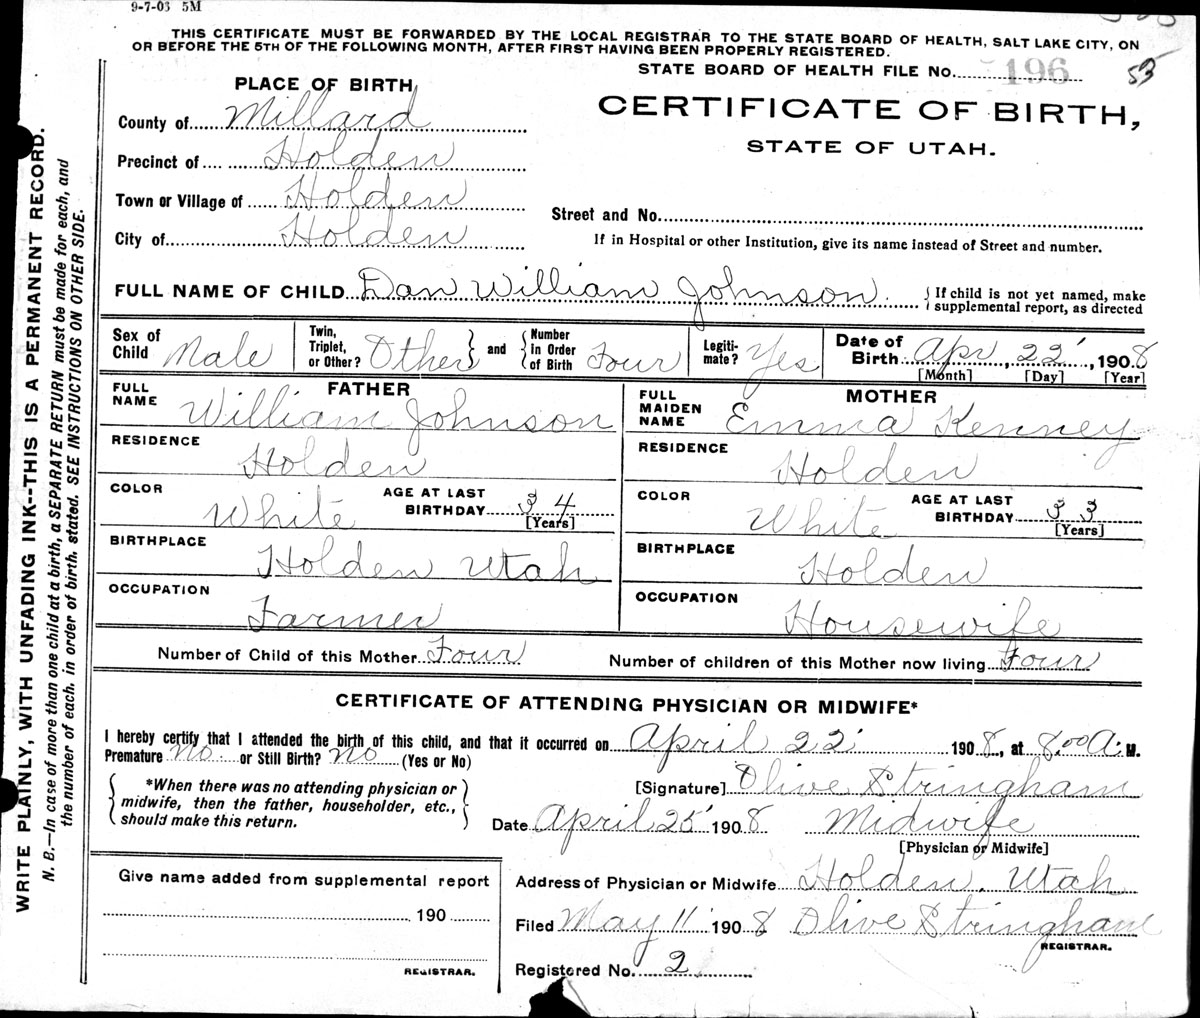 9-7-03 5M
THIS CERTIFICATE MUST BE FORWARDED BY THE LOCAL REGISTRAR TO THE STATE BOARD OF HEALTH, SALT LAKE CITY, ON
OR BEFORE THE 5TH OF THE FOLLOWING MONTH, AFTER FIRST HAVING BEEN PROPERLY REGISTERED.
STATE BOARD OF HEALTH FILE No. 196 53
PLACE OF BIRTH
CERTIFICATE OF BIRTH,
STATE OF UTAH.
County of Millard
Precinct of Holden
Town or Village of Holden
City of Holden
Street and No.
If in Hospital or other Institution, give its name instead of Street and number.
FULL NAME OF CHILD Dan William Johnson
If child is not yet named, make
supplemental report, as directed
Sex of Child Male
Twin, Triplet, or Other? Other and
Number in Order of Birth Four
Legitimate? Yes
Date of Birth Apr 22, 1908
[Month] [Day] [Year]
FATHER
FULL NAME William Johnson
RESIDENCE Holden
COLOR White
AGE AT LAST BIRTHDAY 34
[Years]
BIRTHPLACE Holden Utah
OCCUPATION Farmer
MOTHER
FULL MAIDEN NAME Emma Kenney
RESIDENCE Holden
COLOR White
AGE AT LAST BIRTHDAY 33
[Years]
BIRTHPLACE Holden
OCCUPATION Housewife
Number of Child of this Mother Four
Number of children of this Mother now living Four
CERTIFICATE OF ATTENDING PHYSICIAN OR MIDWIFE*
I hereby certify that I attended the birth of this child, and that it occurred on April 22 1908, at 8.00 A. M.
Premature No or Still Birth? No (Yes or No)
*When there was no attending physician or
midwife, then the father, householder, etc.,
should make this return.
[Signature] Olive Stringham
Date April 25 1908 Midwife
[Physician or Midwife]
Give name added from supplemental report
190
REGISTRAR.
Address of Physician or Midwife Holden, Utah
Filed May 11 1908 Olive Stringham
REGISTRAR.
Registered No. 2
WRITE PLAINLY, WITH UNFADING INK--THIS IS A PERMANENT RECORD.
N. B.—In case of more than one child at a birth, a SEPARATE RETURN must be made for each, and
the number of each, in order of birth, stated. SEE INSTRUCTIONS ON OTHER SIDE.